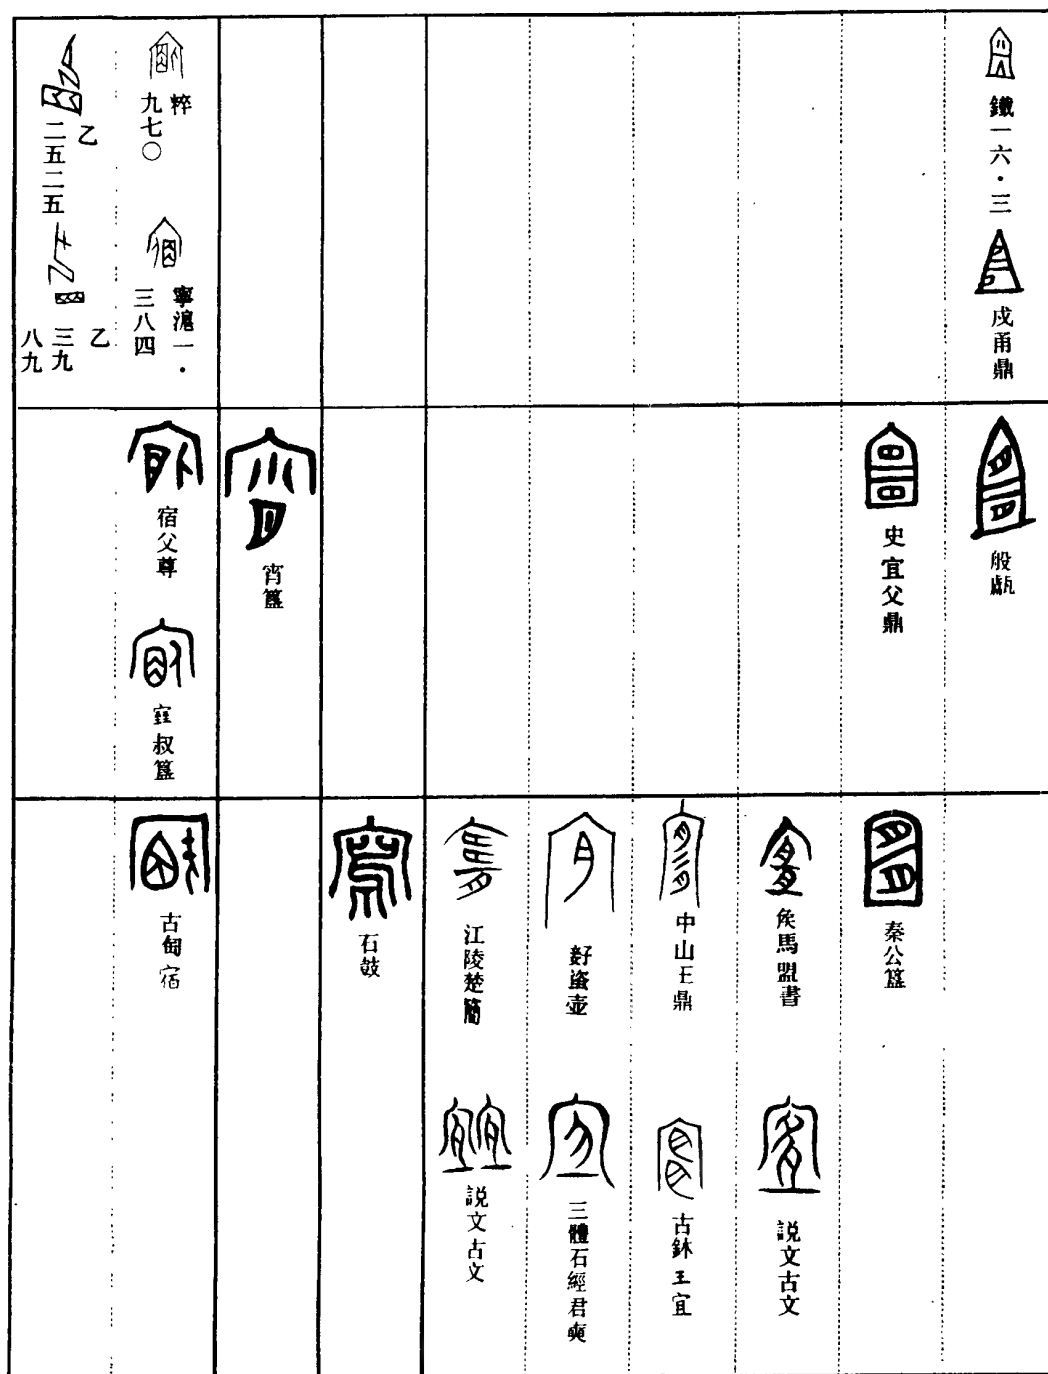 鐵一六·三
戍甬鼎
粹九七〇
寧滬一·三八四
乙二五二五
乙三九八九
般甗
史宜父鼎
宵簋
宿父尊
叔簋
秦公簋
侯馬盟書
說文古文
中山王鼎
古鉥王宜
𧊒壺
三體石經君奭
江陵楚簡
說文古文
石鼓
古匋宿